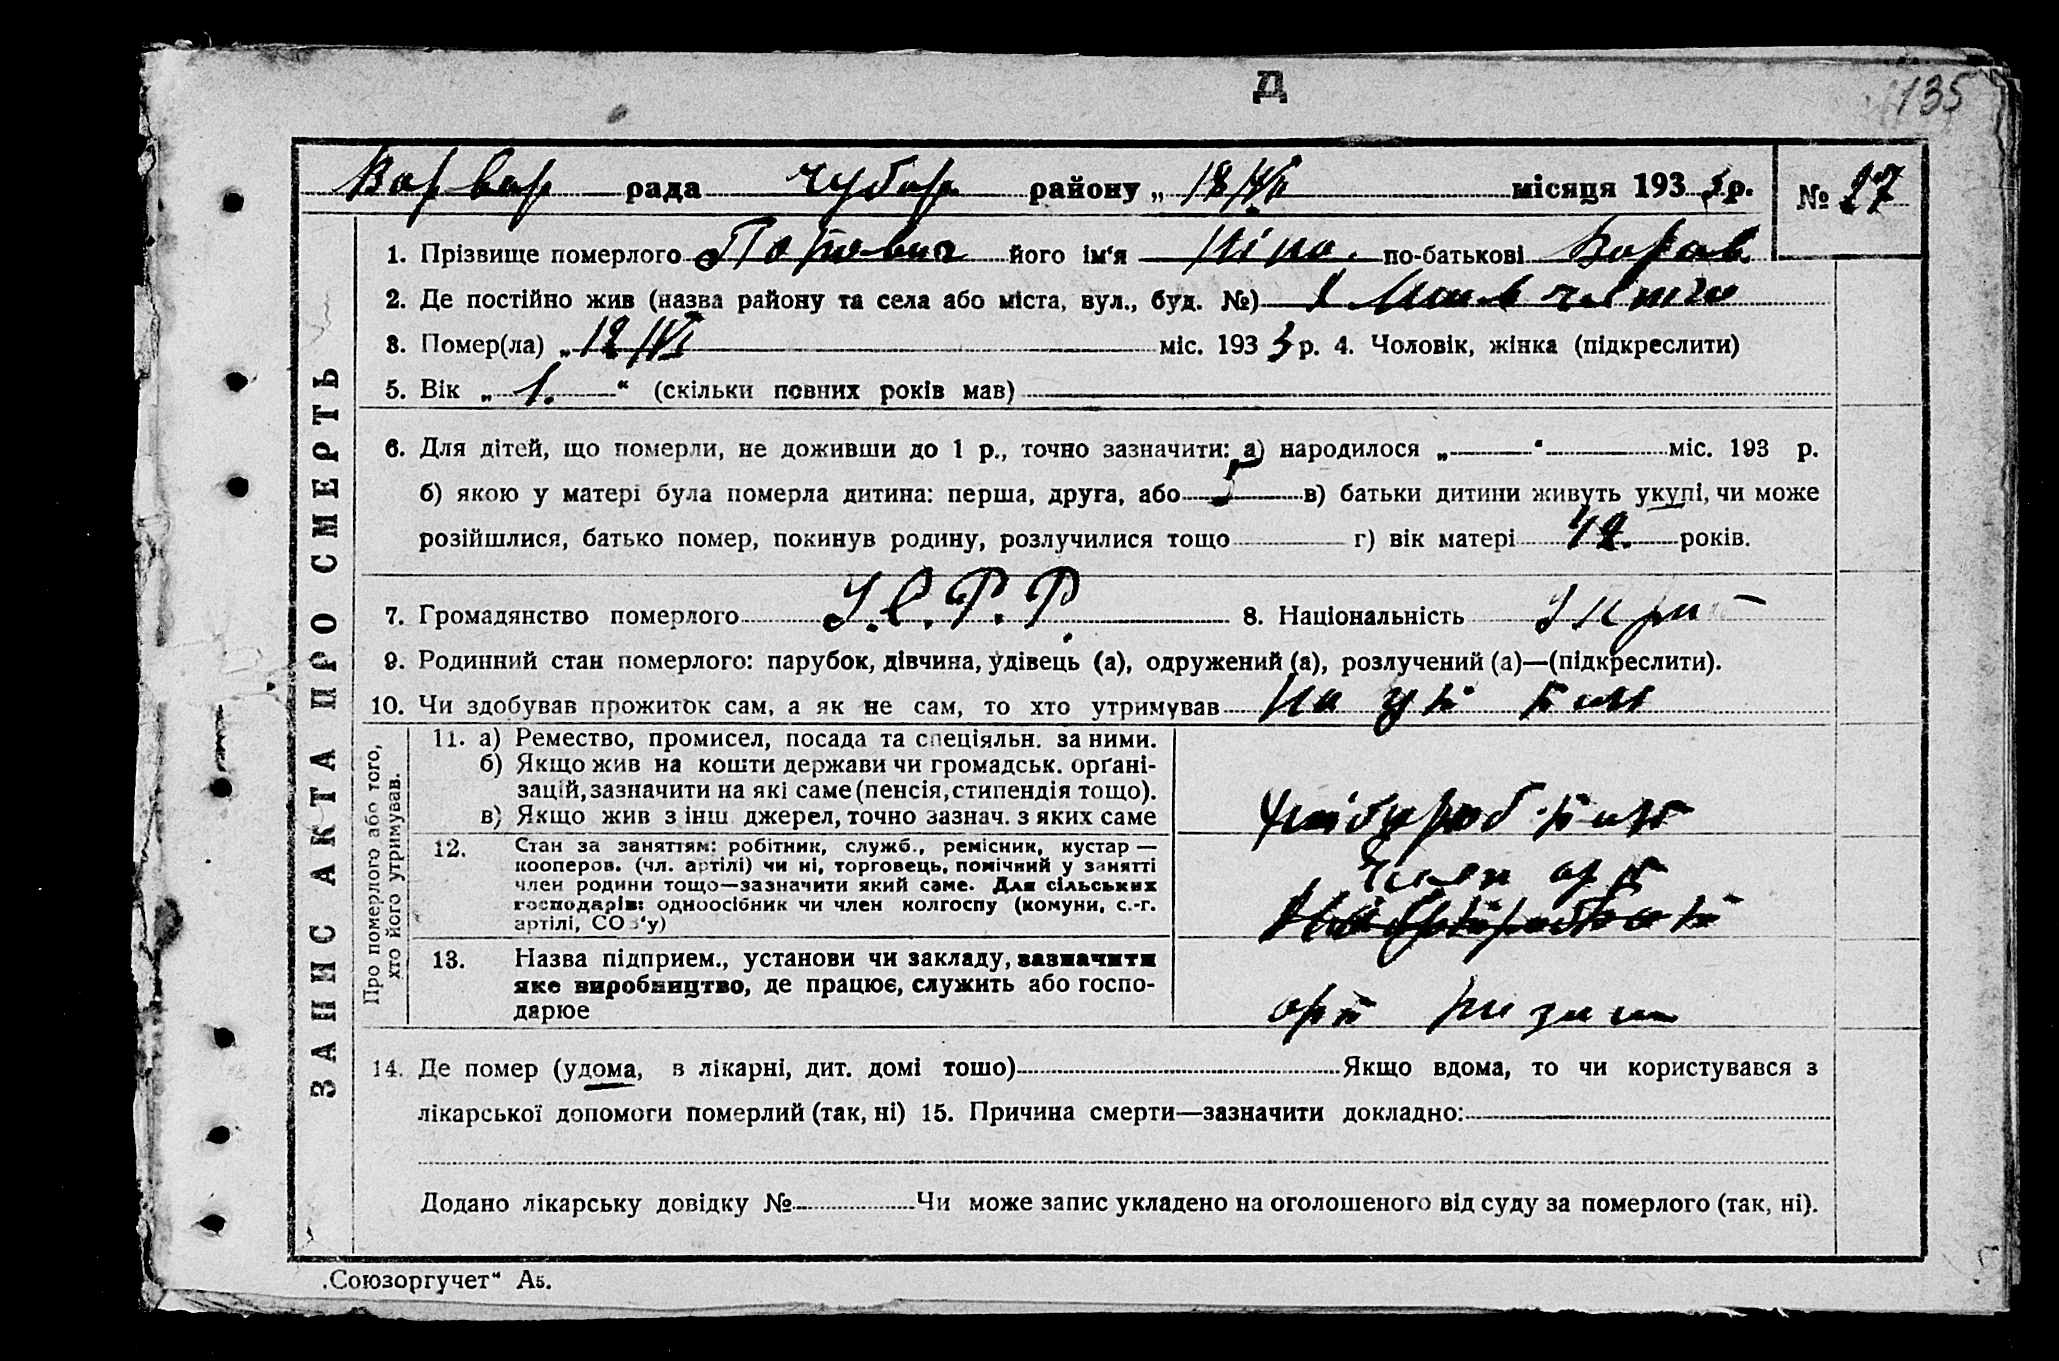 Д
135
Варвар рада Чубар району „ 18/VI місяця 1933 р. № 27
1. Прізвище померлого його ім‘я Ніна по-батькові
2. Де постійно жив (назва району та села або міста, вул., буд. №)
3. Помер(ла) „ 12/VI міс. 1933 р. 4. Чоловік, жінка (підкреслити)
5. Вік „ 1. “ (скільки повних років мав)
6. Для дітей, що померли, не доживши до 1 р., точно зазначити: а) народилося „ “ міс. 193 р.
б) якою у матері була померла дитина: перша, друга, або 5 в) батьки дитини живуть укупі, чи може
розійшлися, батько помер, покинув родину, розлучилися тощо г) вік матері 42. років.
7. Громадянство померлого У.С.Р.Р. 8. Національність Укр
9. Родинний стан померлого: парубок, дівчина, удівець (а), одружений (а), розлучений (а)—(підкреслити).
10. Чи здобував прожиток сам, а як не сам, то хто утримував
11. а) Ремество, промисел, посада та спеціяльн. за ними.
б) Якщо жив на кошти держави чи громадськ. орґані-
зацій, зазначити на які саме (пенсія, стипендія тощо).
в) Якщо жив з інш джерел, точно зазнач. з яких саме
12. Стан за заняттям: робітник, служб., ремісник, кустар —
кооперов. (чл. артілі) чи ні, торговець, помічний у занятті
член родини тощо—зазначити який саме. Для сільських
господарів: одноосібник чи член колгоспу (комуни, с.-г.
артілі, СОЗ‘у)
член арт
13. Назва підприєм., установи чи закладу, зазначити
яке виробництво, де працює, служить або госпо-
дарює
арт
14. Де помер (удома, в лікарні, дит. домі тошо) Якщо вдома, то чи користувався з
лікарської допомоги померлий (так, ні) 15. Причина смерти—зазначити докладно:
Додано лікарську довідку № Чи може запис укладено на оголошеного від суду за померлого (так, ні).
ЗАПИС АКТА ПРО СМЕРТЬ
Про померлого або того,
хто його утримував.
„Союзоргучет“ А5.